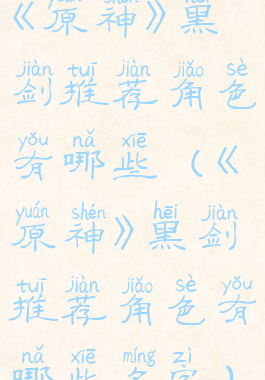 《原神》黑
jiàn tuī jiàn jiǎo sè
剑推荐角色
yǒu nǎ xiē
有哪些（《
yuán shén hēi jiàn
原神》黑剑
tuī jiàn jiǎo sè yǒu
推荐角色有
nǎ xiē míng zì
哪些名字）